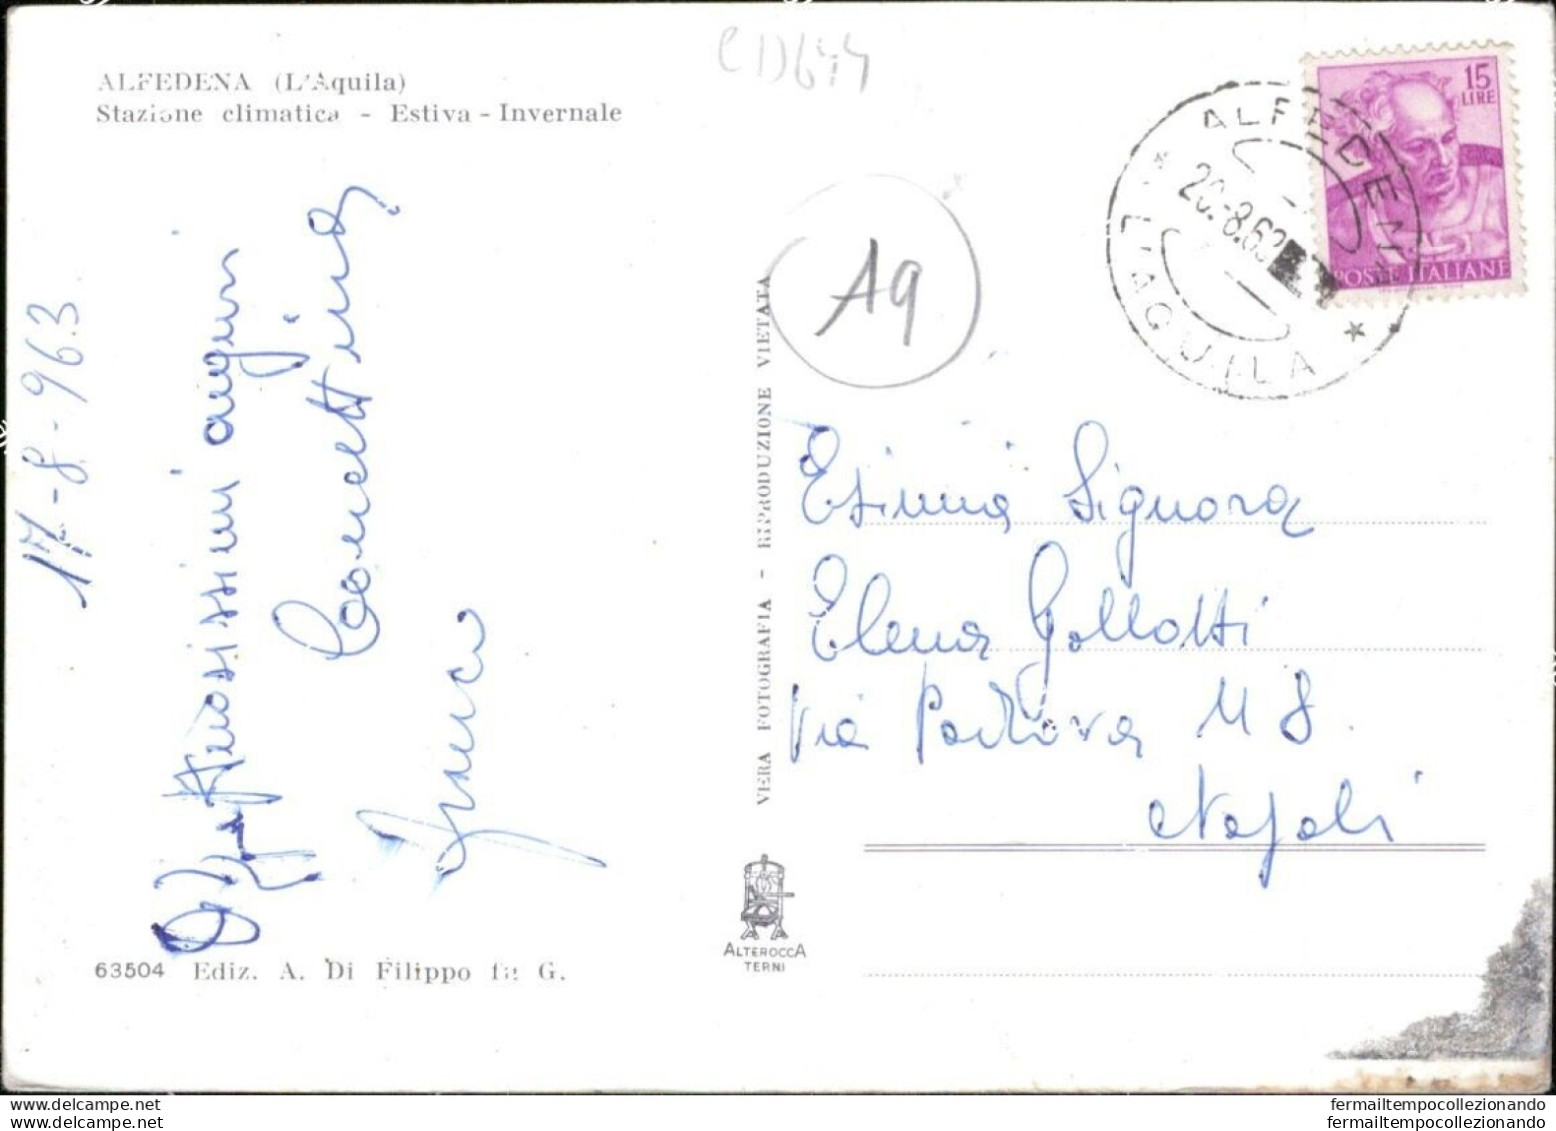 ALFEDENA (L'Aquila)
Stazione climatica - Estiva - Invernale
CD644
15
LIRE
POSTE ITALIANE
ALFEDENA
20.-8.63
* L'AQUILA *
A9
17-8-963
Affettuosissimi auguri
Concettina
Franco
VERA FOTOGRAFIA - RIPRODUZIONE VIETATA
Esimia Signora
Elena Gallotti
Via Padova N 8.
Napoli
ALTEROCCA
TERNI
63504 Ediz. A. Di Filippo fu G.
www.delcampe.net
fermailtempocollezionando
www.delcampe.net
fermailtempocollezionando